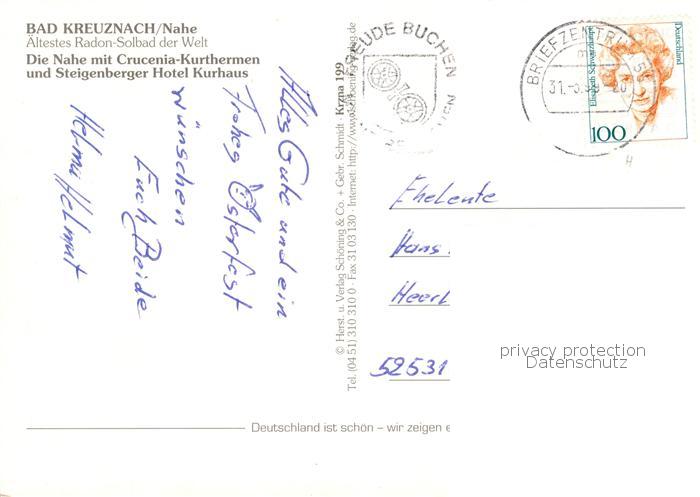 BAD KREUZNACH/Nahe
Ältestes Radon-Solbad der Welt
Die Nahe mit Crucenia-Kurthermen
und Steigenberger Hotel Kurhaus
Alles Gute und ein
Frohes Osterfest
wünschen
Euch Beide
Helmut
© Herst. u. Verlag Schöning & Co. + Gebr. Schmidt · Krzna 199
Tel. (04 51) 310 310 0 · Fax 31 03 130 · Internet: http://www.schoening-verlag.de
FREUDE BUCHEN
BRIEFZENTRUM 55
31.-3.
Elisabeth Schwarzhaupt
100
Eheleute
Hans
Heerl
52531
privacy protection
Datenschutz
Deutschland ist schön – wir zeigen e